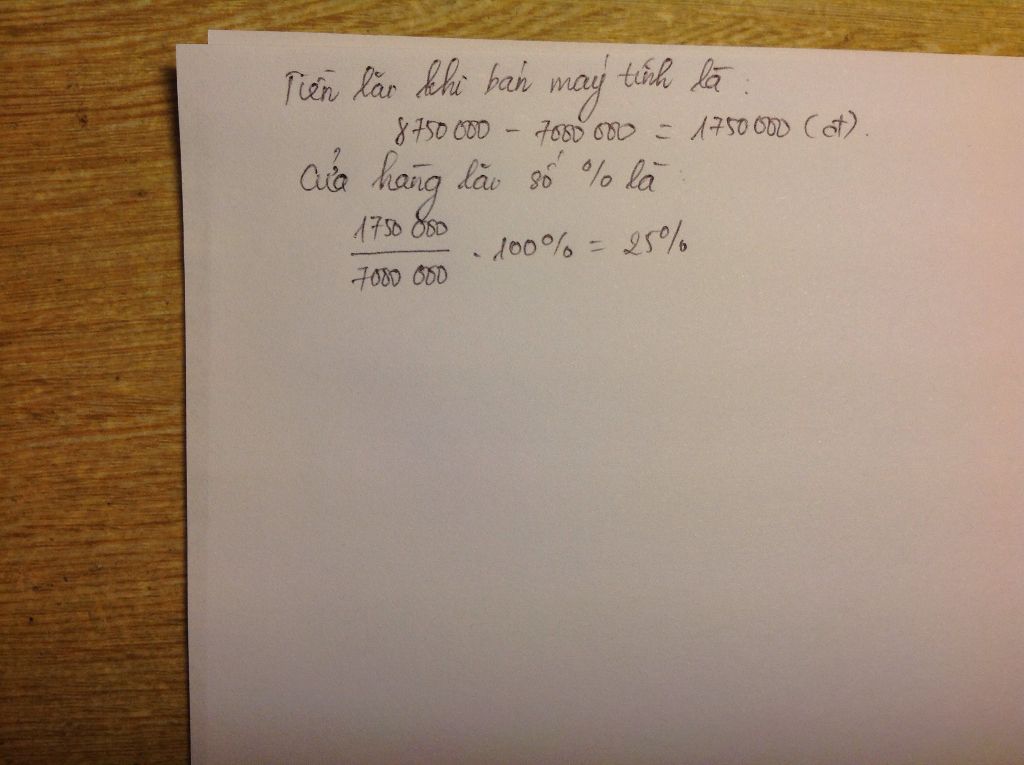 Tiền lãi khi bán máy tính là :
8750 000 - 7000 000 = 1750 000 (đ).
Cửa hàng lãi số % là :
1750 000
7000 000 . 100% = 25%